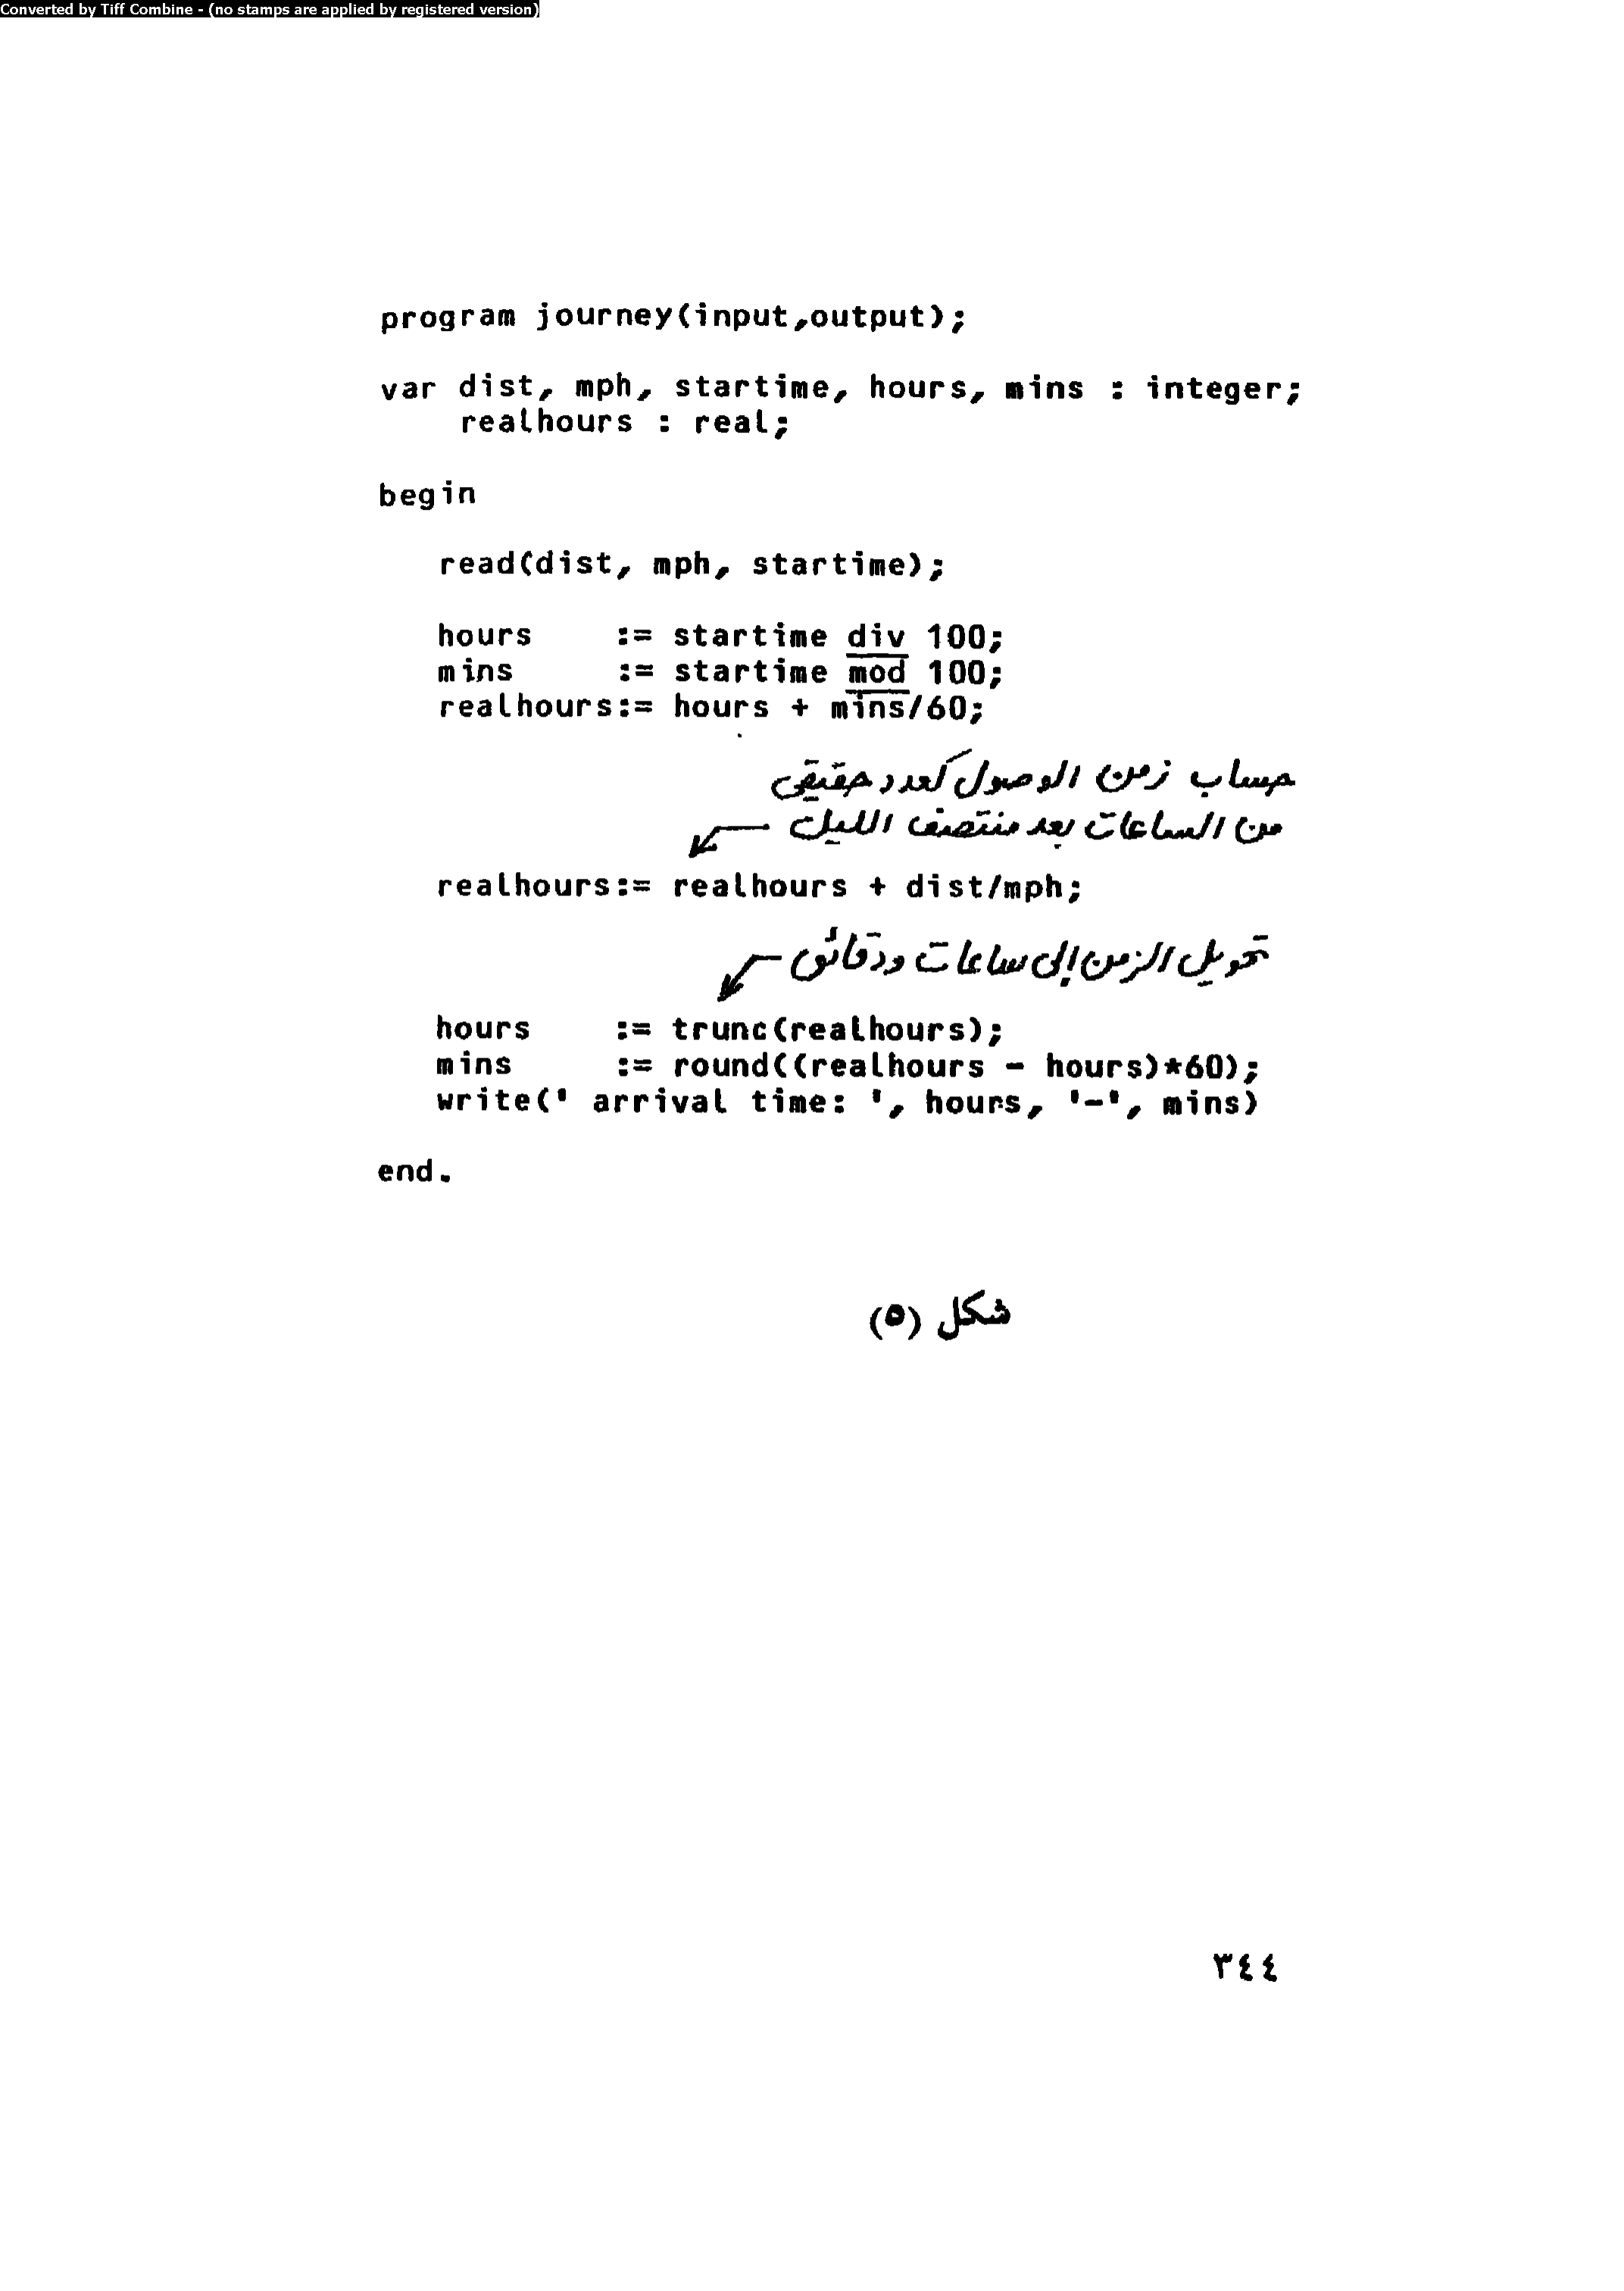 Converted by Tiff Combine - (no stamps are applied by registered version)
program journey(input,output);
var dist, mph, startime, hours, mins : integer;
realhours : real;
begin
read(dist, mph, startime);
hours := startime div 100;
mins := startime mod 100;
realhours:= hours + mins/60;
حساب زمن الوصول كعدد حقيقى
من الساعات بعد منتصف الليل
realhours:= realhours + dist/mph;
تحويل الزمن إلى ساعات ودقائق
hours := trunc(realhours);
mins := round((realhours - hours)*60);
write(' arrival time: ', hours, '-', mins)
end.
شكل (٥)
٣٤٤